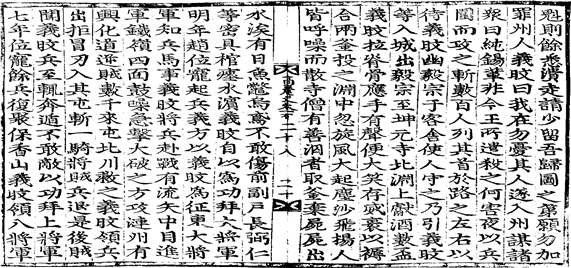 魁則餘悉潰走請少留吾歸圖之第願勿加
罪州人義旼曰我在勿憂其人遂入州謀諸
衆曰純錫輩非今王所遣殺之何害夜以兵
圍而攻之斬數百人列其首於路之左右以
待義旼幽毅宗于客舍使人守之乃引義旼
等入城出毅宗至坤元寺北淵上獻酒數盃
義旼拉脊骨應手有聲便大笑存威裹以褥
合兩釜投之淵中忽旋風大起塵沙飛揚人
皆呼噪而散寺僧有善泅者取釜棄屍屍出
水涘有日魚鼈烏鳶不敢傷前副戶長弼仁
等密具棺瘞水濱義旼自以爲功拜大將軍
明年趙位寵起兵義方以義旼爲征東大將
軍知兵馬事義旼將兵赴戰有流矢中目進
軍鐵嶺四面鼓噪急擊大破之方攻漣州有
興化道逆賊數千來屯北川救之義旼領兵
出拒冒刃入其屯斬一騎將賊兵退是後賊
聞義旼兵至輒奔遁不敢敵以功拜上將軍
七年位寵餘兵復聚保香山義旼領八將軍